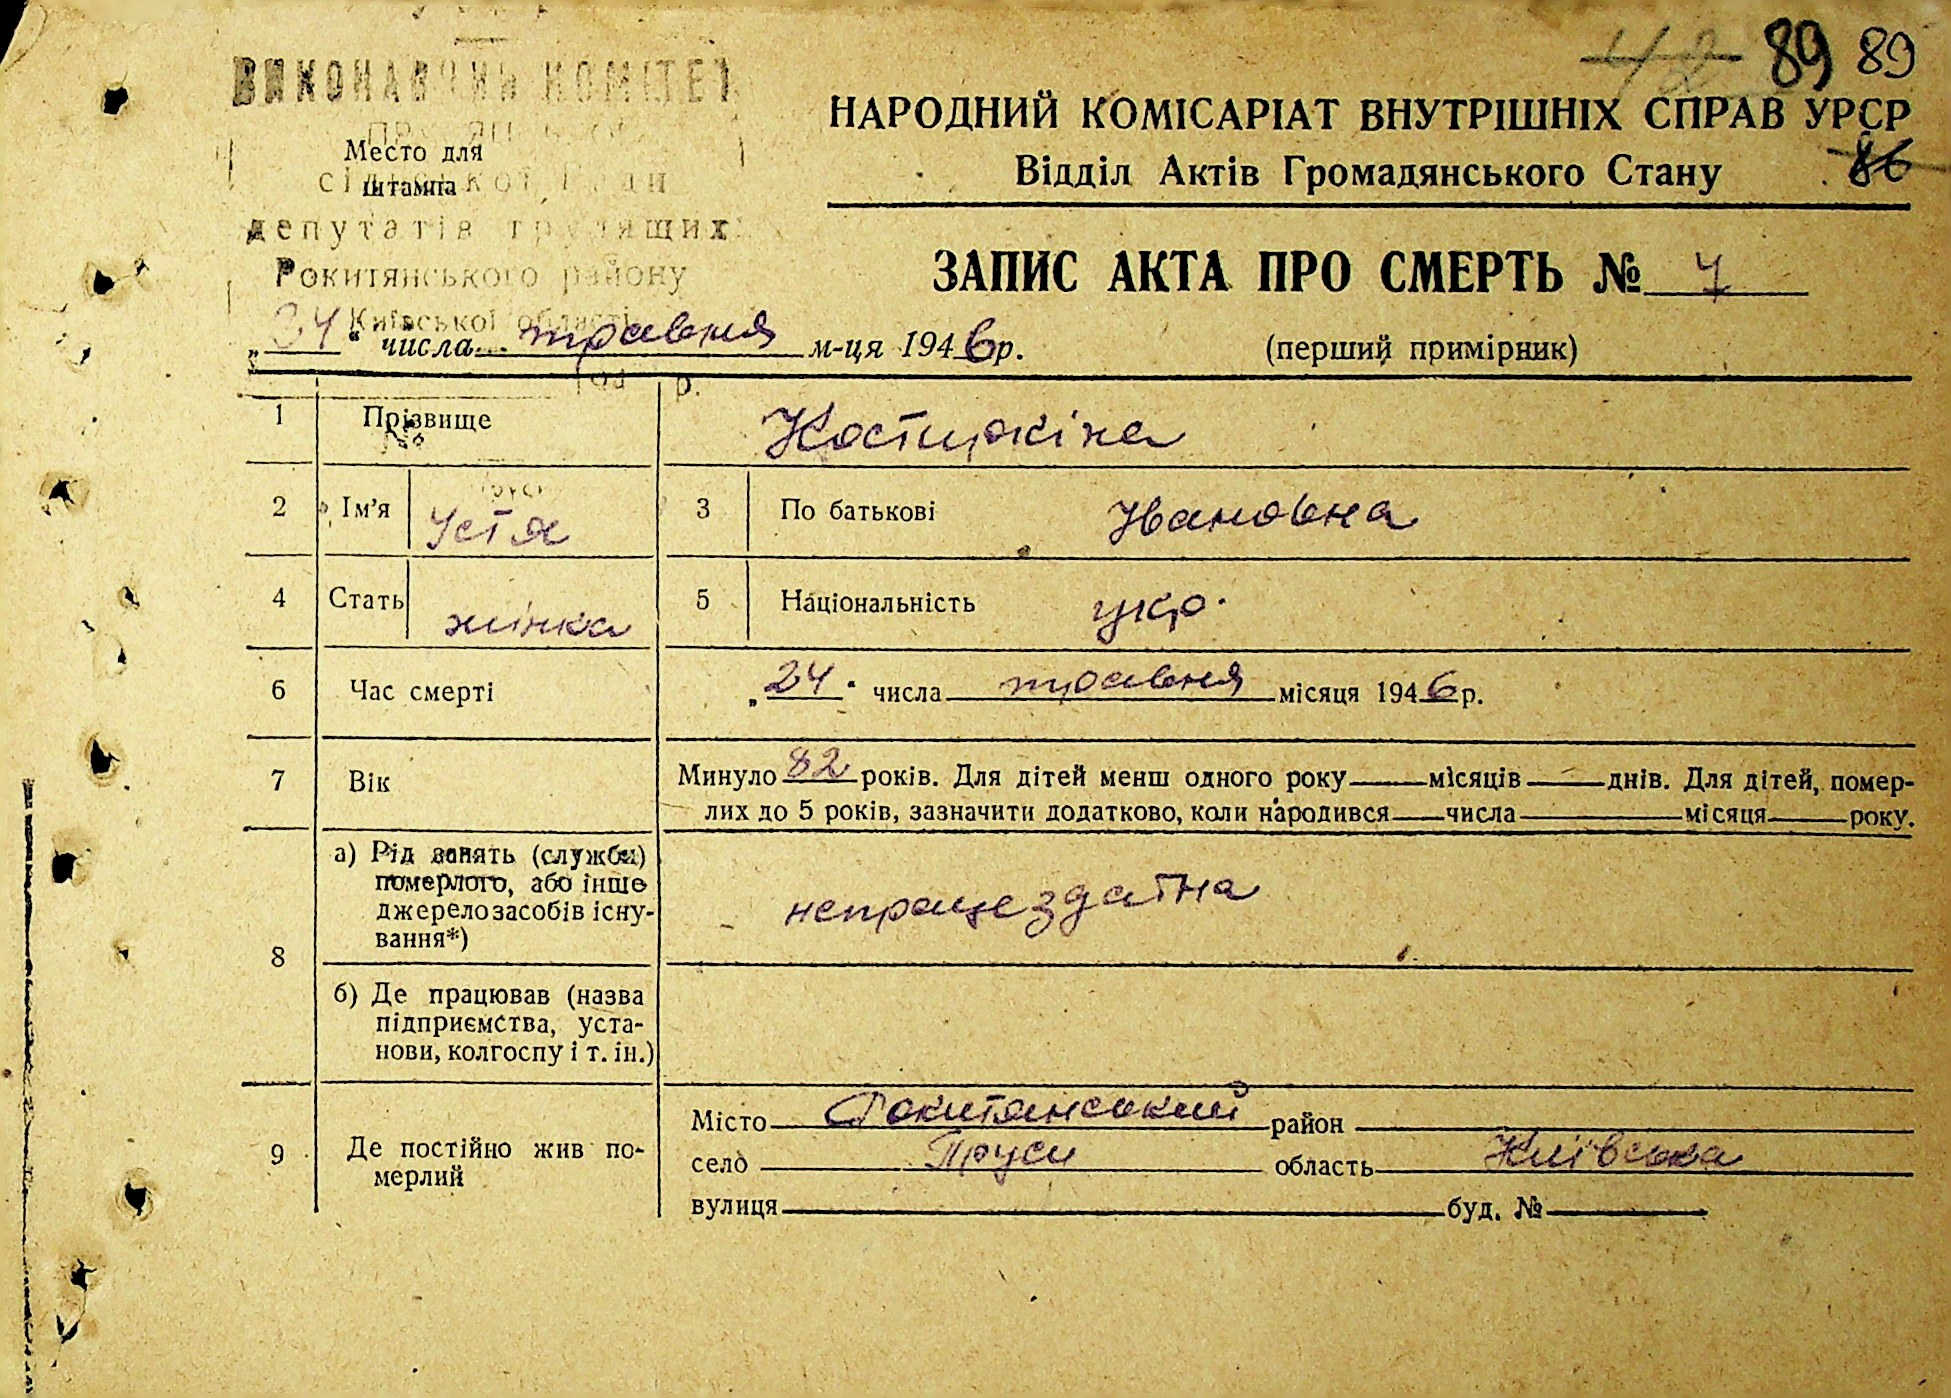 42 89 89
ВИКОНАВЧИЙ КОМІТЕТ
НАРОДНИЙ КОМІСАРІАТ ВНУТРІШНІХ СПРАВ УРСР
Место для
штампа
сільської Ради
Відділ Актів Громадянського Стану 86
депутатів трудящих
Рокитянського району
Київської області
ЗАПИС АКТА ПРО СМЕРТЬ № 7
„24“ числа травня м-ця 1946р.
(перший примірник)
1 Прізвище Костиркіна
2 Ім'я Устя 3 По батькові Ивановна
4 Стать жінка 5 Національність укр.
6 Час смерті „24“ числа травня місяця 1946р.
7 Вік Минуло 82 років. Для дітей менш одного року місяців днів. Для дітей, помер-
лих до 5 років, зазначити додатково, коли народився числа місяця року.
8 а) Рід занять (служби)
померлого, або інше
джерело засобів існу-
вання*)
непрацездатна
б) Де працював (назва
підприємства, уста-
нови, колгоспу і т. ін.)
9 Де постійно жив по-
мерлий
Місто Рокитянський район
село Труси область Київська
вулиця буд. №